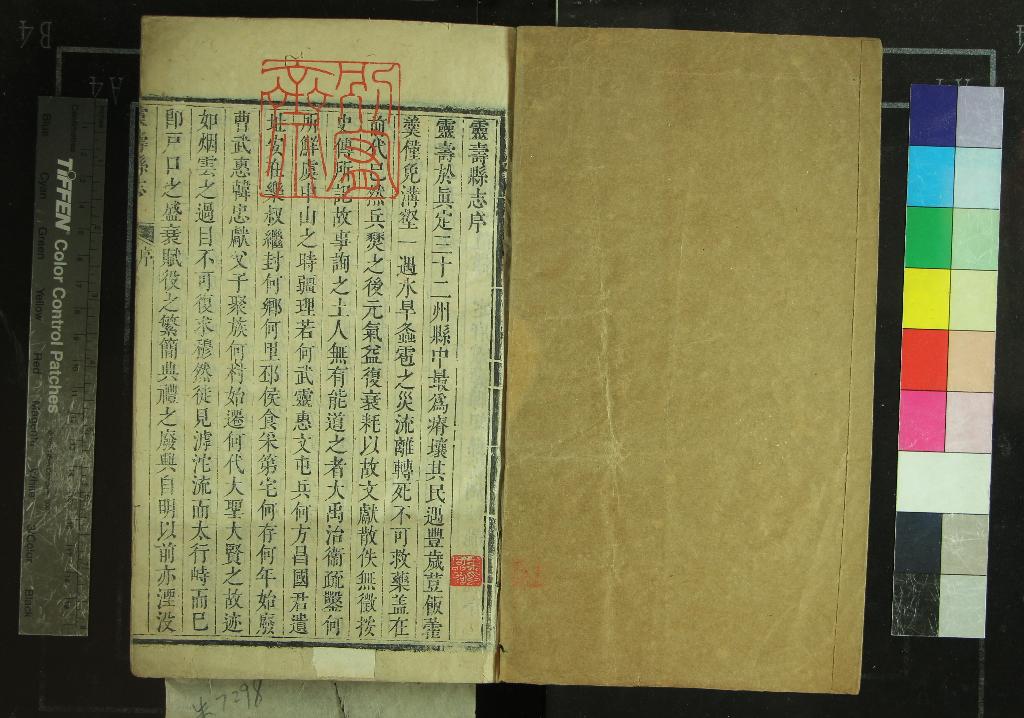 靈壽縣志序
靈壽於真定三十二州縣中最為瘠壤其民遇豐歲荳飯藿
羹僅免溝壑一遇水旱螽雹之災流離轉死不可救藥蓋在
前代已然兵燹之後元氣益復衰耗以故文獻散佚無徵按
史傳所記故事詢之土人無有能道之者大禹治衛疏鑿何
所鮮虞中山之時疆理若何武靈惠文屯兵何方昌國君遺
址安在樂叔繼封何鄉何里邳侯食采第宅何存何年始廢
曹武惠韓忠獻父子聚族何村始遷何代大聖大賢之故迹
如烟雲之過目不可復求穆然徒見滹沱流而太行峙而已
即戸口之盛衰賦役之繁簡典禮之廢興自明以前亦湮没
靈壽縣志
序
TIFFEN Color Control Patches
Blue
Cyan
Green
Yellow
Red
Magenta
White
3/Color
Black
B4
A4
7298